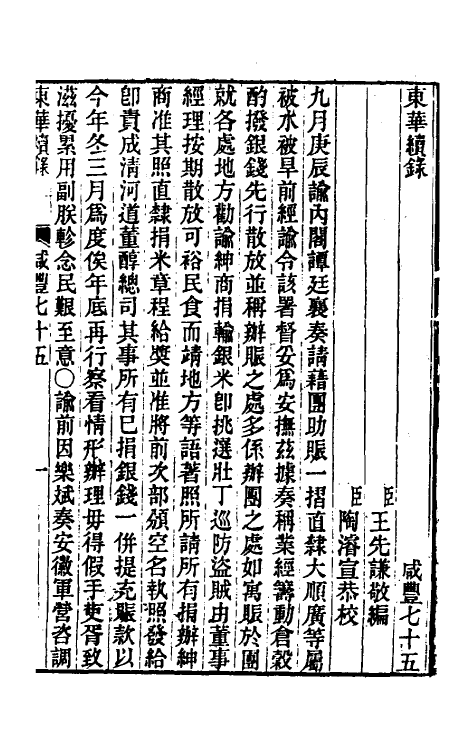 東華續錄　咸豐七十五
臣王先謙敬編
臣陶濬宣恭校
九月庚辰諭內閣譚廷襄奏請藉團助賑一摺直隸大順廣等屬
被水被旱前經諭令該署督妥爲安撫茲據奏稱業經籌動倉穀
酌撥銀錢先行散放並稱辦賑之處多係辦團之處如寓賑於團
就各處地方勸諭紳商捐輸銀米卽挑選壯丁巡防盜賊由董事
經理按期散放可裕民食而靖地方等語著照所請所有捐辦紳
商准其照直隸捐米章程給獎並准將前次部頒空名執照發給
卽責成清河道董醇總司其事所有已捐銀錢一併提充賑款以
今年冬三月爲度俟年底再行察看情形辦理毋得假手吏胥致
滋擾累用副朕軫念民艱至意○諭前因樂斌奏安徽軍營咨調
東華續錄　咸豐七十五　一